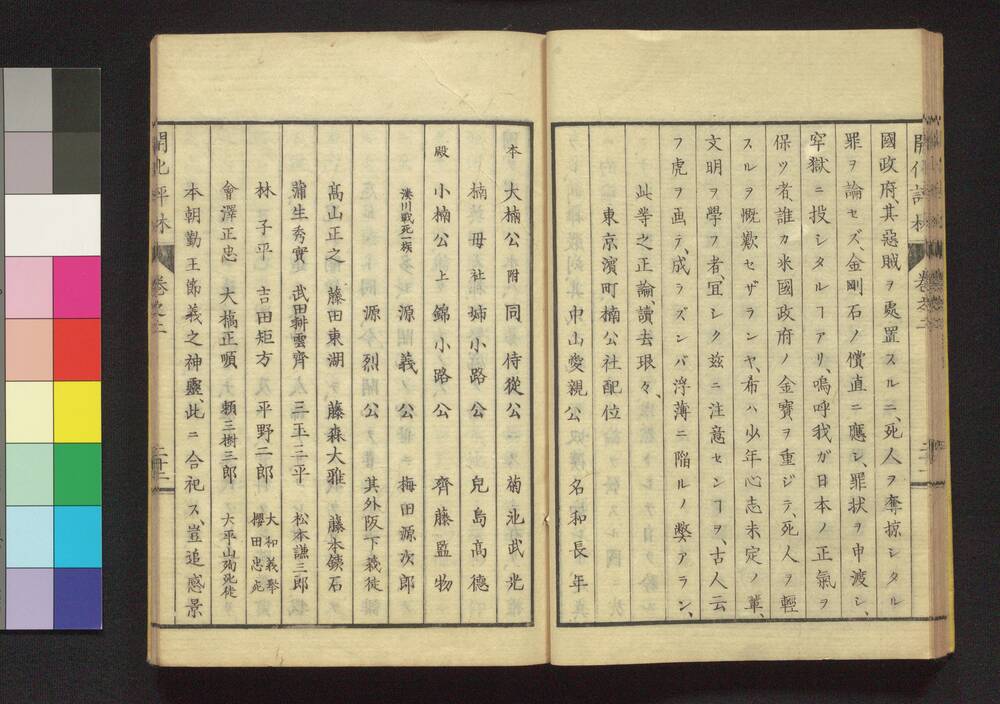 國政府、其惡賊ヲ處置スルニ、死人ヲ奪掠シタル
罪ヲ論セズ、金剛石ノ償直ニ應シ、罪狀ヲ申渡シ、
牢獄ニ投シタルヿアリ、嗚呼我ガ日本ノ正氣ヲ
保ツ者、誰カ米國政府ノ金寶ヲ重ジテ、死人ヲ輕
スルヲ慨歎セザランヤ、布ハ少年心志未定ノ輩、
文明ヲ學フ者、宜シク茲ニ注意センヿヲ、古人云
フ虎ヲ画テ、成ラズンバ浮薄ニ陥ルノ弊アラン、
此等之正論、讀去琅々、
東京濱町楠公社配位
中山愛親公 名和長年
本 大楠公 附 同侍從公 菊池武光
楠母 社 姉小路公 兒島高德
殿 小楠公 上 錦小路公 齊藤監物
湊川戰死一族 源義公 梅田源次郎
源烈公 其外阪下義徒
高山正之 藤田東湖 藤森大雅 藤本鐵石
蒲生秀實 武田耕雲齊 三王三平 松本謙三郎
林子平 吉田矩方 平野二郎 大和義擧 櫻田忠死
會澤正忠 大橋正順 頼三樹三郎 大平山殉死徒
本朝勤王節義之神靈、此ニ合祀ス、豈追感景
開化評林 卷之二